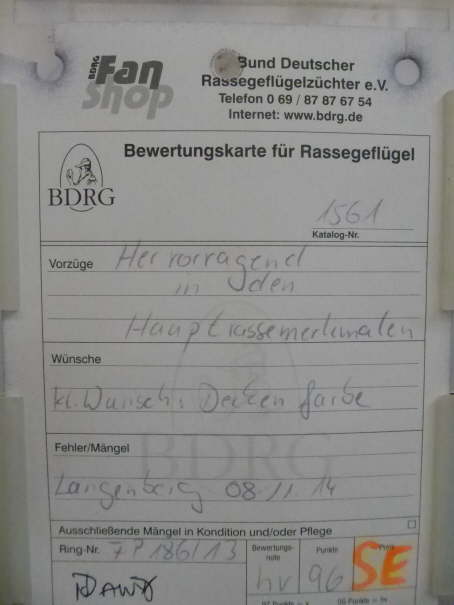 BDRG Fan Shop
Bund Deutscher
Rassegeflügelzüchter e.V.
Telefon 0 69 / 87 87 67 54
Internet: www.bdrg.de
Bewertungskarte für Rassegeflügel
BDRG
1561
Katalog-Nr.
Vorzüge Hervorragend
in den
Hauptrassemerkmalen
Wünsche
kl. Wunsch: Decken farbe
Fehler/Mängel
Langenberg 08.11.14
Ausschließende Mängel in Kondition und/oder Pflege
Ring-Nr. 186/13
Bewertungs-note
Punkte
Preis
hv 96 SE